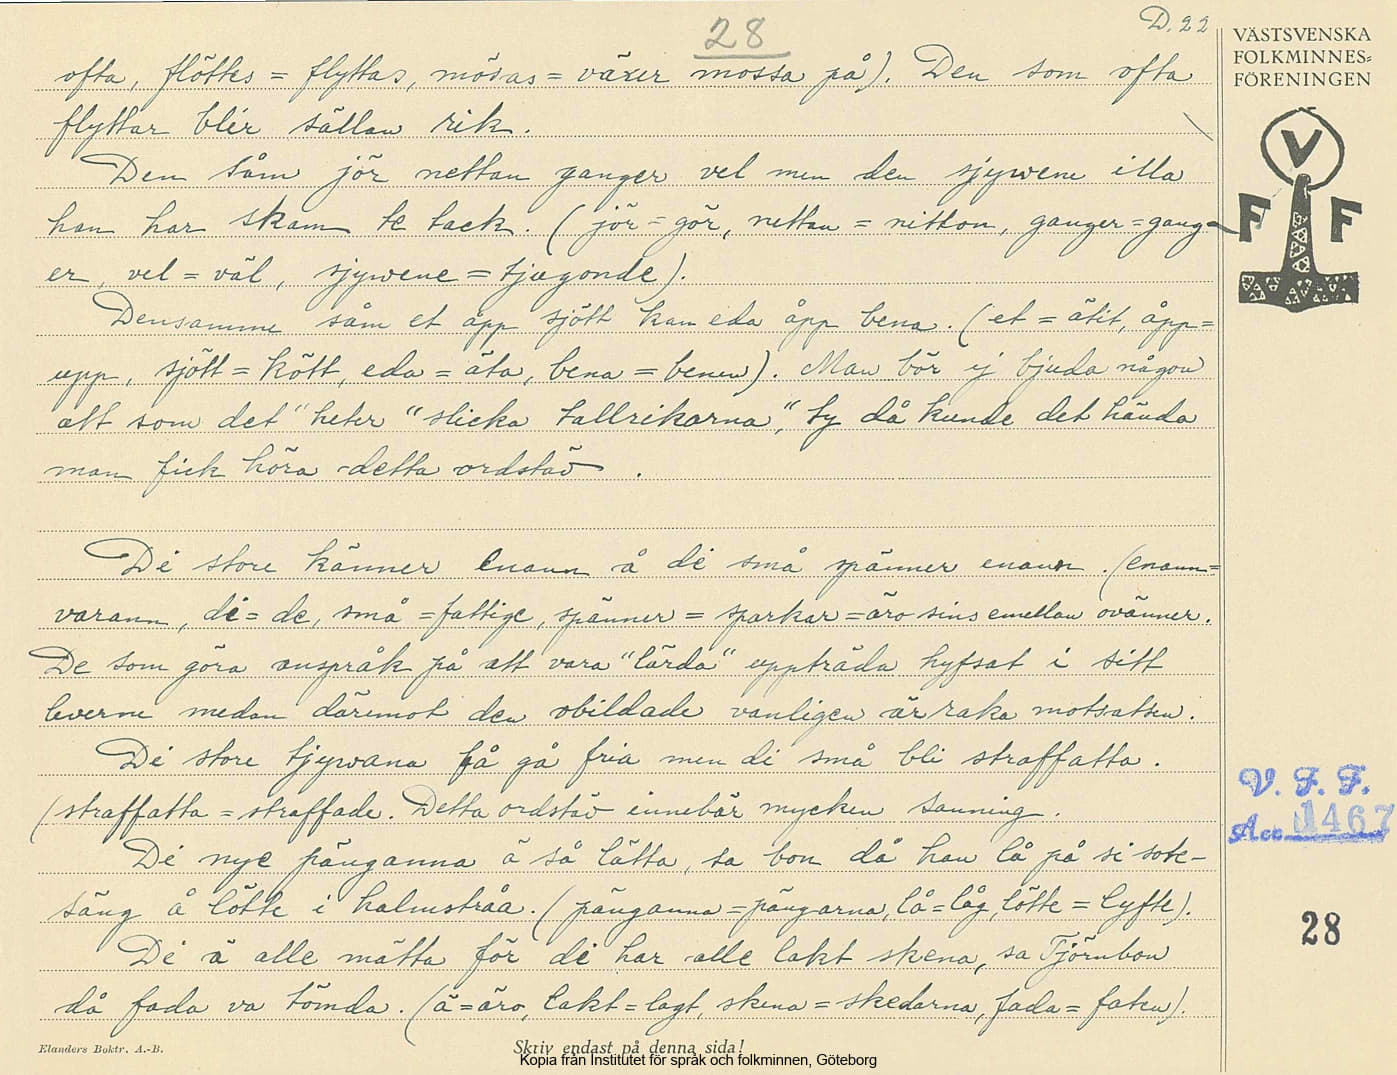 28
D. 22
VÄSTSVENSKA
FOLKMINNES=
FÖRENINGEN
ofta, flöttes = flyttas, mösas = växer mossa på). Den som ofta
flyttar blir sällan rik.
Den såm jör nettan ganger vel men den sjywene illa
han har skam te tack. (jör = gör, nettan = nitton, ganger = gang-
er, vel = väl, sjywene = tjugonde).
Densamme såm et åpp sjött kan eda åpp bena. (et = ätit, åpp=
upp, sjött = kött, eda = äta, bena = benen). Man bör ej bjuda någon
att som det "heter "slicka tallrikarna", ty då kunde det hända
man fick höra detta ordstäv.
Di store känner enann å di små spänner enann. (enann=
varann, di = de, små = fattige, spänner = sparkar = äro sins emellan ovänner.
De som göra anspråk på att vara "lärda" uppträda hyfsat i sitt
leverne medan däremot den obildade vanligen är raka motsatsen.
Di store tjywana få gå fria men di små bli straffatta.
(straffatta = straffade. Detta ordstäv innebär mycken sanning.
Di nye pänganna ä så lätta, sa bon då han lå på si sote-
säng å lötte i halmstråa. (pänganna = pängarna, lå = låg, lötte = lyfte).
Di ä alle mätta för di har alle lakt skena, sa Tjörnbon
då fada va tömda. (ä = äro, lakt = lagt, skena = skedarna, fada = faten).
V
F F
V. F. F.
Acc 1467
28
Elanders Boktr. A.-B.
Skriv endast på denna sida!
Kopia från Institutet för språk och folkminnen, Göteborg